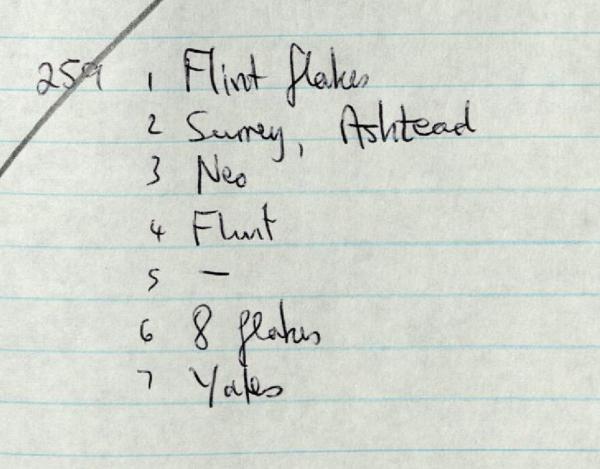 259 1 Flint flakes
2 Surrey, Ashtead
3 Neo
4 Flint
5 —
6 8 flakes
7 Yates